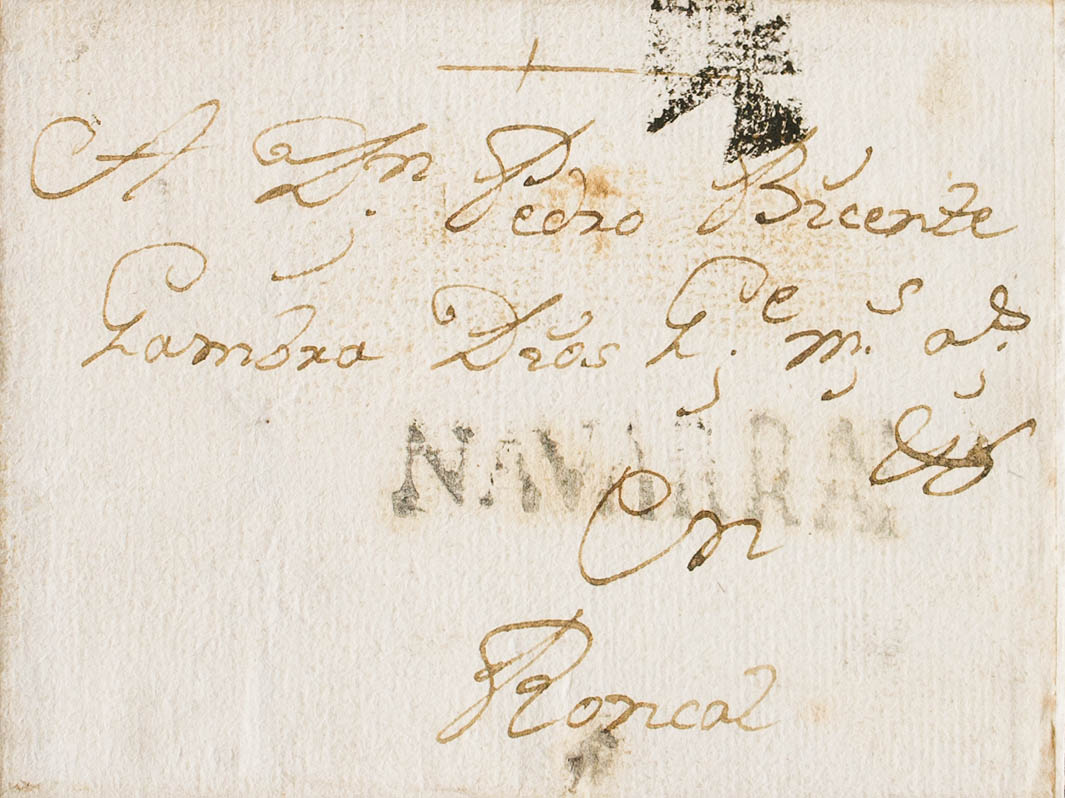 A Dn. Pedro Bicente
Gambra Dios Ge. ms. as.
NAVARRA
En
Roncal